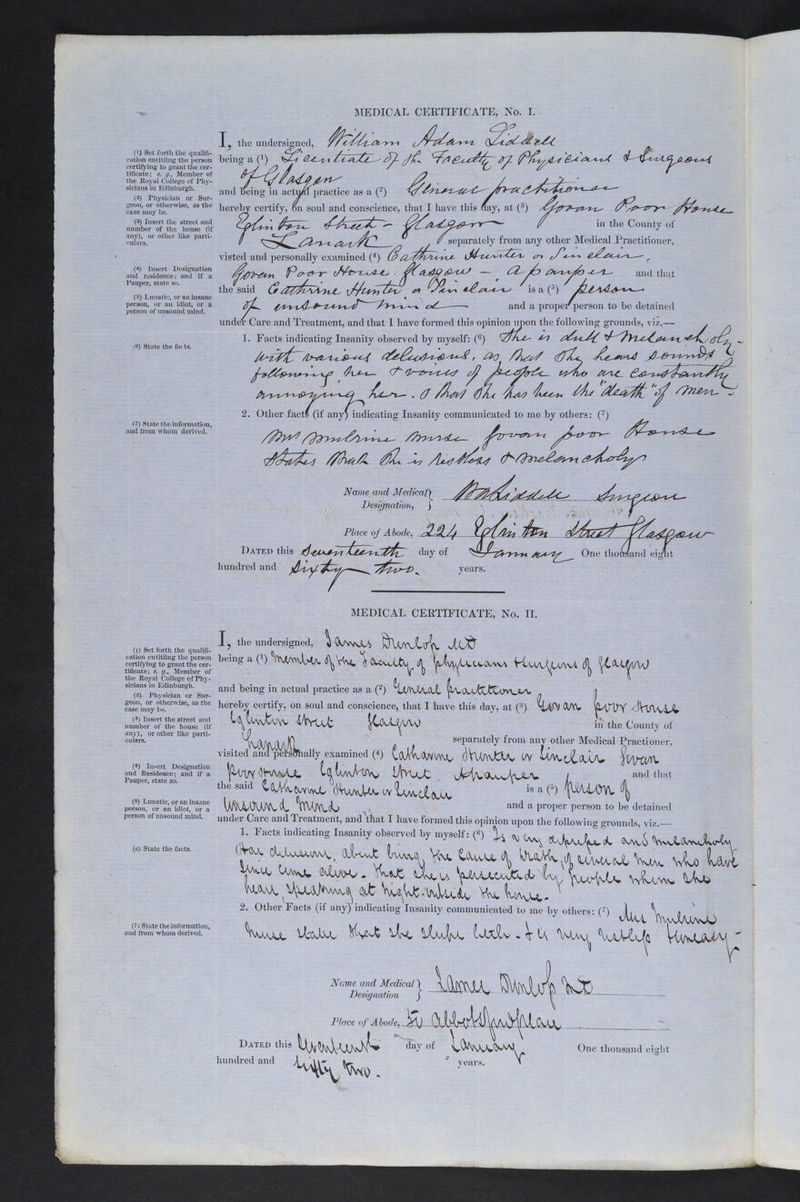 MEDICAL CERTIFICATE, No. I.
(1) Set forth the qualifi-
cation entitling the person
certifying to grant the cer-
tificate; e. g., Member of
the Royal College of Phy-
sicians in Edinburgh.
(2) Physician or Sur-
geon, or otherwise, as the
case may be.
(3) Insert the street and
number of the house (if
any), or other like parti-
culars.
(4) Insert Designation
and residence; and if a
Pauper, state so.
(5) Lunatic, or an insane
person, or an idiot, or a
person of unsound mind.
(6) State the facts.
(7) State the information,
and from whom derived.
I, the undersigned, William Adam Liddell
being a (1) Licentiate of the Faculty of Physicians & Surgeons
of Glasgow
and being in actual practice as a (2) General practitioner
hereby certify, on soul and conscience, that I have this day, at (3) Govan Poor House
Eglinton Street - Glasgow in the County of
Lanark separately from any other Medical Practitioner,
visted and personally examined (4) Cathrine Hunter or Sinclair,
Govan Poor House. Glasgow - a pauper and that
the said Cathrine Hunter or Sinclair is a (5) person
of unsound mind and a proper person to be detained
under Care and Treatment, and that I have formed this opinion upon the following grounds, viz.—
1. Facts indicating Insanity observed by myself: (6) She is dull & melancholy -
with various delusions, as that she hears sounds
following her & voices of people who are constantly
annoying her. & that she has been the "death" of men -
2. Other facts (if any) indicating Insanity communicated to me by others: (7)
Mrs Mulrine nurse Govan poor House
States that she is restless & melancholy
Name and Medical Designation, } WALiddell Surgeon
Place of Abode, 224 Eglinton Street Glasgow
DATED this Seventeenth day of January One thousand eight
hundred and Sixty two. years.
MEDICAL CERTIFICATE, No. II.
(1) Set forth the qualifi-
cation entitling the person
certifying to grant the cer-
tificate; e. g., Member of
the Royal College of Phy-
sicians in Edinburgh.
(2). Physician or Sur-
geon, or otherwise, as the
case may be.
(3) Insert the street and
number of the house (if
any), or other like parti-
culars.
(4) Insert Designation
and Residence; and if a
Pauper, state so.
(5) Lunatic, or an insane
person, or an idiot, or a
person of unsound mind.
(6) State the facts.
(7) State the information,
and from whom derived.
I, the undersigned, James Dunlop MD
being a (1) Member of the Faculty of physicians & surgeons of Glasgow
and being in actual practice as a (2) General practitioner
hereby certify, on soul and conscience, that I have this day, at (3) Govan poor House
Eglinton street Glasgow in the County of
Lanark separately from any other Medical Practioner,
visited and personally examined (4) Catharine Hunter or Sinclair Govan
Poor House Eglinton Street A pauper and that
the said Catharine Hunter or Sinclair is a (5) person of
unsound mind and a proper person to be detained
under Care and Treatment, and that I have formed this opinion upon the following grounds, viz.—
1. Facts indicating Insanity observed by myself: (6) Is very depressed and melancholy
Has delusions, about being the cause of death of several men who have
since come alive. that she is persecuted by people whom she
hears speaking at night outside the house.
2. Other Facts (if any) indicating Insanity communicated to me by others: (7) Mrs Mulrine
nurse states that she sleeps little - & is very restless & uneasy -
Name and Medical Designation } James Dunlop MD
Place of Abode, Abbotsford place
DATED this Seventeenth day of January One thousand eight
hundred and sixty two. years.